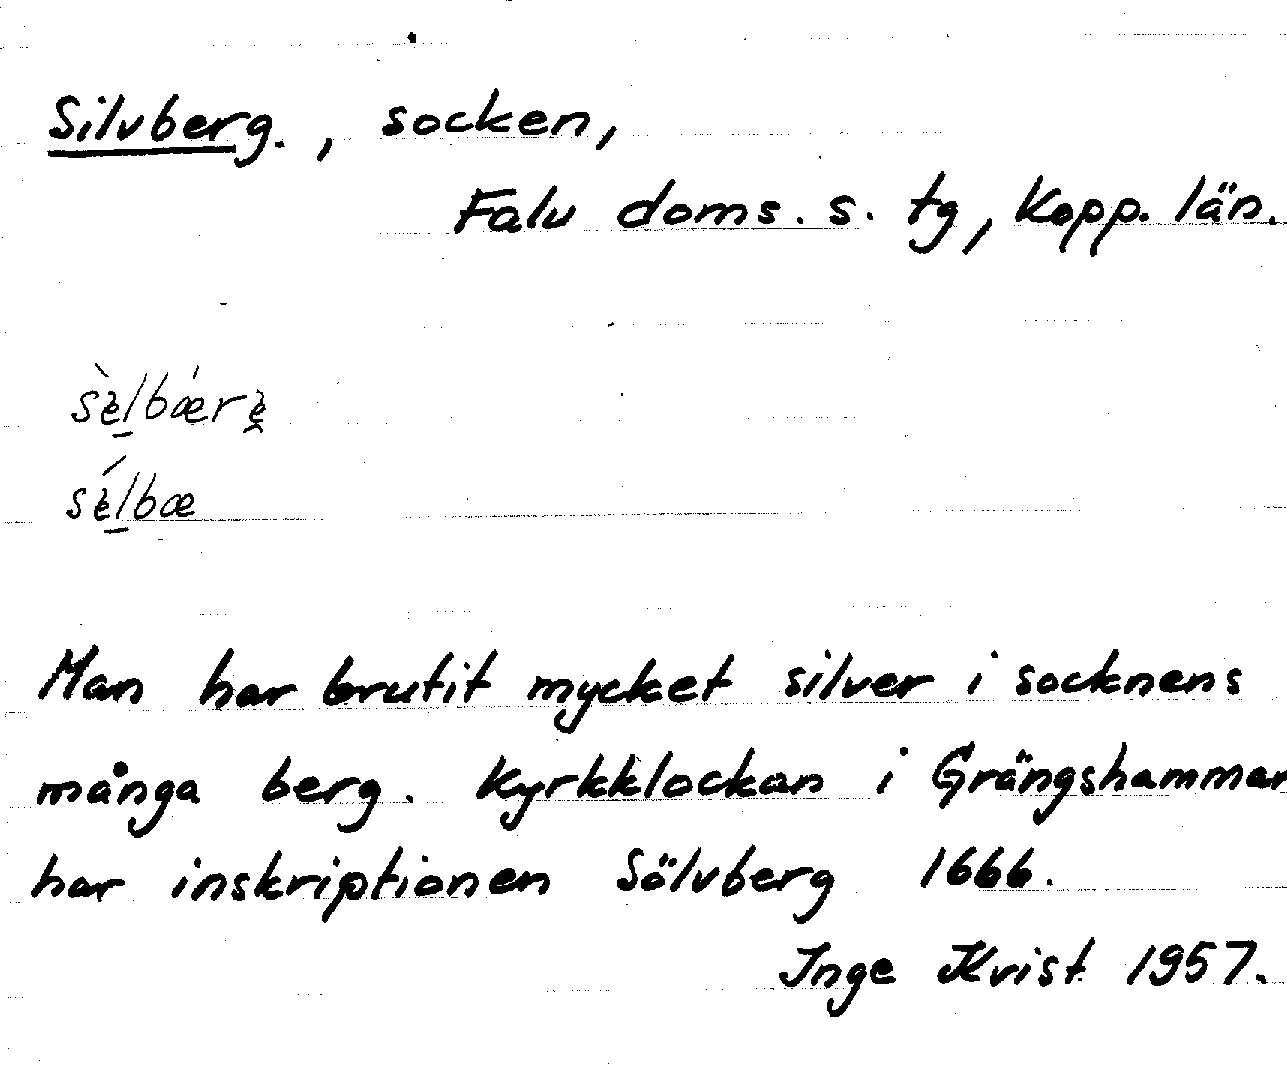 Silvberg., socken,
Falu doms. s. tg, Kopp. län.
Man har brutit mycket silver i socknens
många berg. Kyrkklockan i Grängshammar
har inskriptionen Sölvberg 1666.
Inge Kvist 1957.